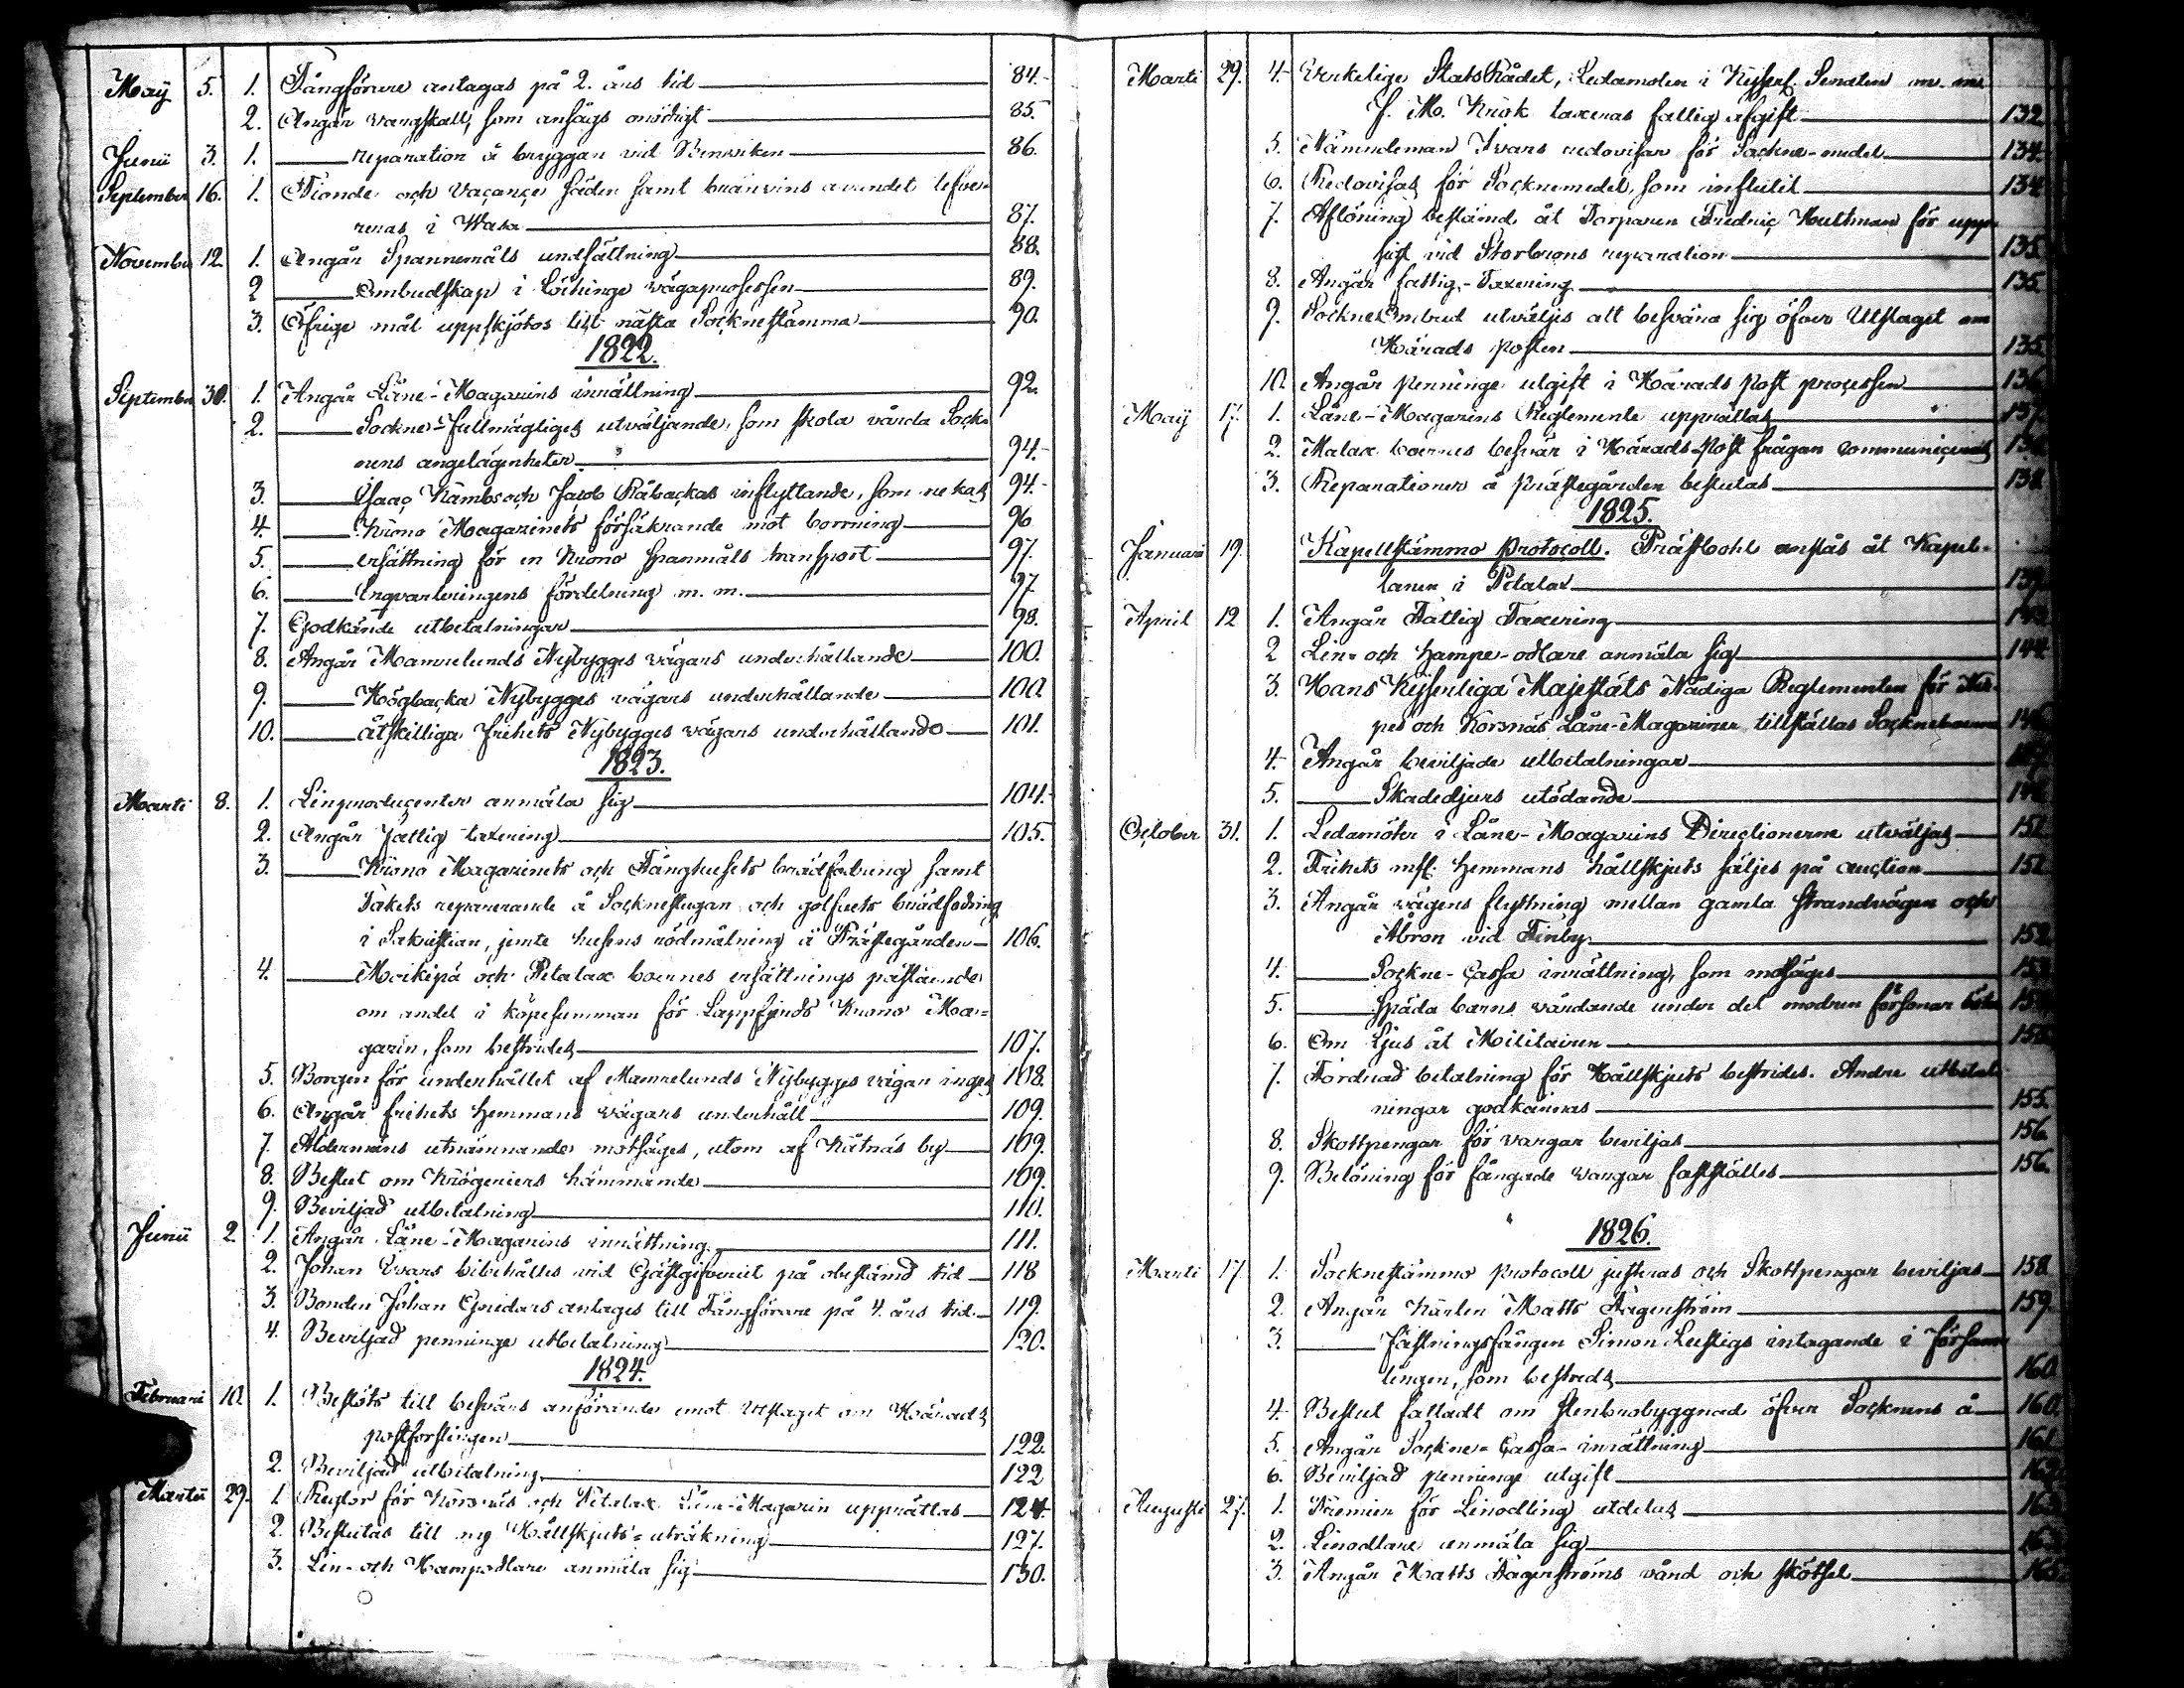 Maÿ 5. 1. Fångförare antagas på 2. års tid 84.
2. Angår vargskall, som ansågs onödigt 85.
Junii 3. 1. reparation å bryggan vid Benviken 86.
September 16. 1. Tionde och Vacance säden samt bränvins arendet lefve-
reras i Wasa 87.
November 12 1. Angår Spannemåls undsättning 88.
2 Ombudskap i vägaprosessen 89.
3. Öfrige mål uppskjötos till nästa Socknestämma 90.
1822.
September 30. 1. Angår Låne-Magazins inrättning 92.
2. Sockne-fullmägtiges utväljande, som skola vårda Sock-
nens angelägenheter 94.
3. Isaac och Jacob Råbackas inflyttande, som nekas 94.
4. Krono Magazinets försäkrande mot borrning 96
5. ersättning för en Krono spanmåls transport 97.
6. Inqvarteringens fördelning m. m. 97.
7. Godkände utbetalningar 98.
8. Angår Mamrelunds Nybygges vägars underhållande 100.
9. Högbacka Nybygges vägars underhållande 100.
10. åtskilliga frihets Nybygges vägars underhållande 101.
1823.
Marti 8. 1. Linproducenter anmäla sig 104.
2. Angår fattig taxering 105.
3. Krono Magazinets och Fånghusets brädfodring samt
Takets reparerande å Socknestugan och golfvets brädfodring
i Sakristian, jemte husens rödmålning å Prästegården 106.
4. Moikipä och Petalax boernes ersättnings påstående
om andel i köpesumman för Lappfjerds Krono Ma-
gazin, som bestrides 107.
5. Borgen för underhållet af Mamrelunds Nybygges vägar inges 108.
6. Angår frihets hemmans vägars underhåll 109.
7. Åldermäns utnämnande motsäges, utom af Nätnäs by 109.
8. Beslut om Krögeriers hämmande 109.
9. Beviljad utbetalning 110.
Junii 2 1. Angår Låne-Magazins inrättning 111.
2. Johan Ivars bibehålles vid Gästgifveriet på obestämd tid 118
3. Bonden Johan antages till Fångförare på 4. års tid 119.
4. Beviljad penninge utbetalning 120.
1824.
Februari 10. 1. Beslöts till besvärs anförande emot utslaget om Härads
postforslingen 122.
2. Beviljad utbetalning 122
Martii 29. 1 Reglor för Korsnäs och Petalax Låne-Magazin upprättas 124.
2. Beslutas till ny Hållskjuts-uträkning 127.
3. Lin- och Hampodlare anmäla sig 130.
Marti 29. 4. Verkelige StatsRådet, Ledamoten i Kejserl. Senaten m. m.
J. M. Krook taxeras fattig afgift 132
5. Nämndeman Ivars redovisar för Sockne-medel 134.
6. Redovisas för Socknemedel, som influtit 134
7. Aflöning bestämd åt Torparen Fredric Huttman för upp-
sigt vid Storbrons reparation 135.
8. Angår fattig-Taxering 135.
9. Sockne Ombud utväljes att besvära sig öfver Utslaget om
Härads posten 135.
10. Angår penninge utgift i Härads Post processen 136
Maÿ 17. 1. Låne-Magazins Reglemente upprättas 137
2. Malax boernes besvär i Härads-Post frågan communiceras
3. Reparationer å prästegården beslutas 138.
1825.
Januari 19. Kapellstämmo Protocoll. Prästbohl anslås åt Kapel-
lanen i Petalax 139
April 12 1. Angår Fattig Taxering
2 Lin- och Hampe-odlare anmäla sig 144
3. Hans Kejserliga Majestäts Nådiga Reglementen för När-
pes och Korsnäs Låne-Magaziner tillställas Sockneboerne 146
4. Angår beviljade utbetalningar
5. Skadedjurs utödande
October 31. 1. Ledamöter i Låne-Magazins Directionerne utväljas 151
2. Frihets mfl. hemmans hållskjuts säljes på auction 151
3. Angår vägens flyttning mellan gamla strandvägen och
Åbron vid Finby 152
4. Sockne-Cassa inrättning, som motsäges 153
5. Späda barns vårdande under det modren försonar
6. Om ljus åt Militairen 155
7. Fordrad betalning för Hållskjuts bestrides. Andre utbetal-
ningar godkännas 155.
8. Skottpengar för vargar beviljas 156.
9. Belöning för fångade vargar fastställes 156.
1826.
Marti 17. 1. Socknestämmo protocoll justeras och Skottpengar beviljas 158.
2. Angår Karlen Matts Fagerström 159.
3. Fästningsfången Simon Lustigs intagande i försam-
lingen, som bestreds 160.
4. Beslut fattadt om stenbrobyggnad öfver Socknens å 160.
5. Angår Sockne-Cassa-inrättning 161
6. Beviljad penninge utgift
Augusti 27. 1. Premier för Linodling utdelas
2. Linodlare anmäla sig
3. Angår Matts Fagerströms vård och skötsel